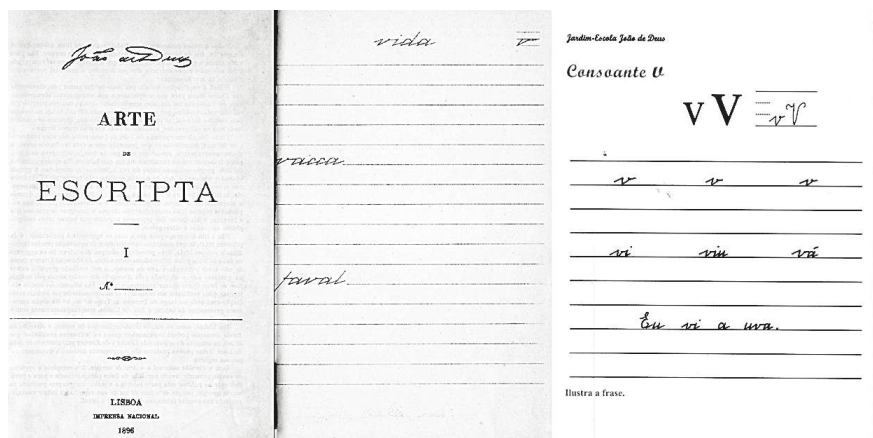 João de Deus
ARTE
DE
ESCRIPTA
I
N.º
LISBOA
IMPRENSA NACIONAL
1896
vida v
vacca
faval
Jardim-Escola João de Deus
Consoante v
v V v V
v v v
vi viu vá
Eu vi a uva.
Ilustra a frase.